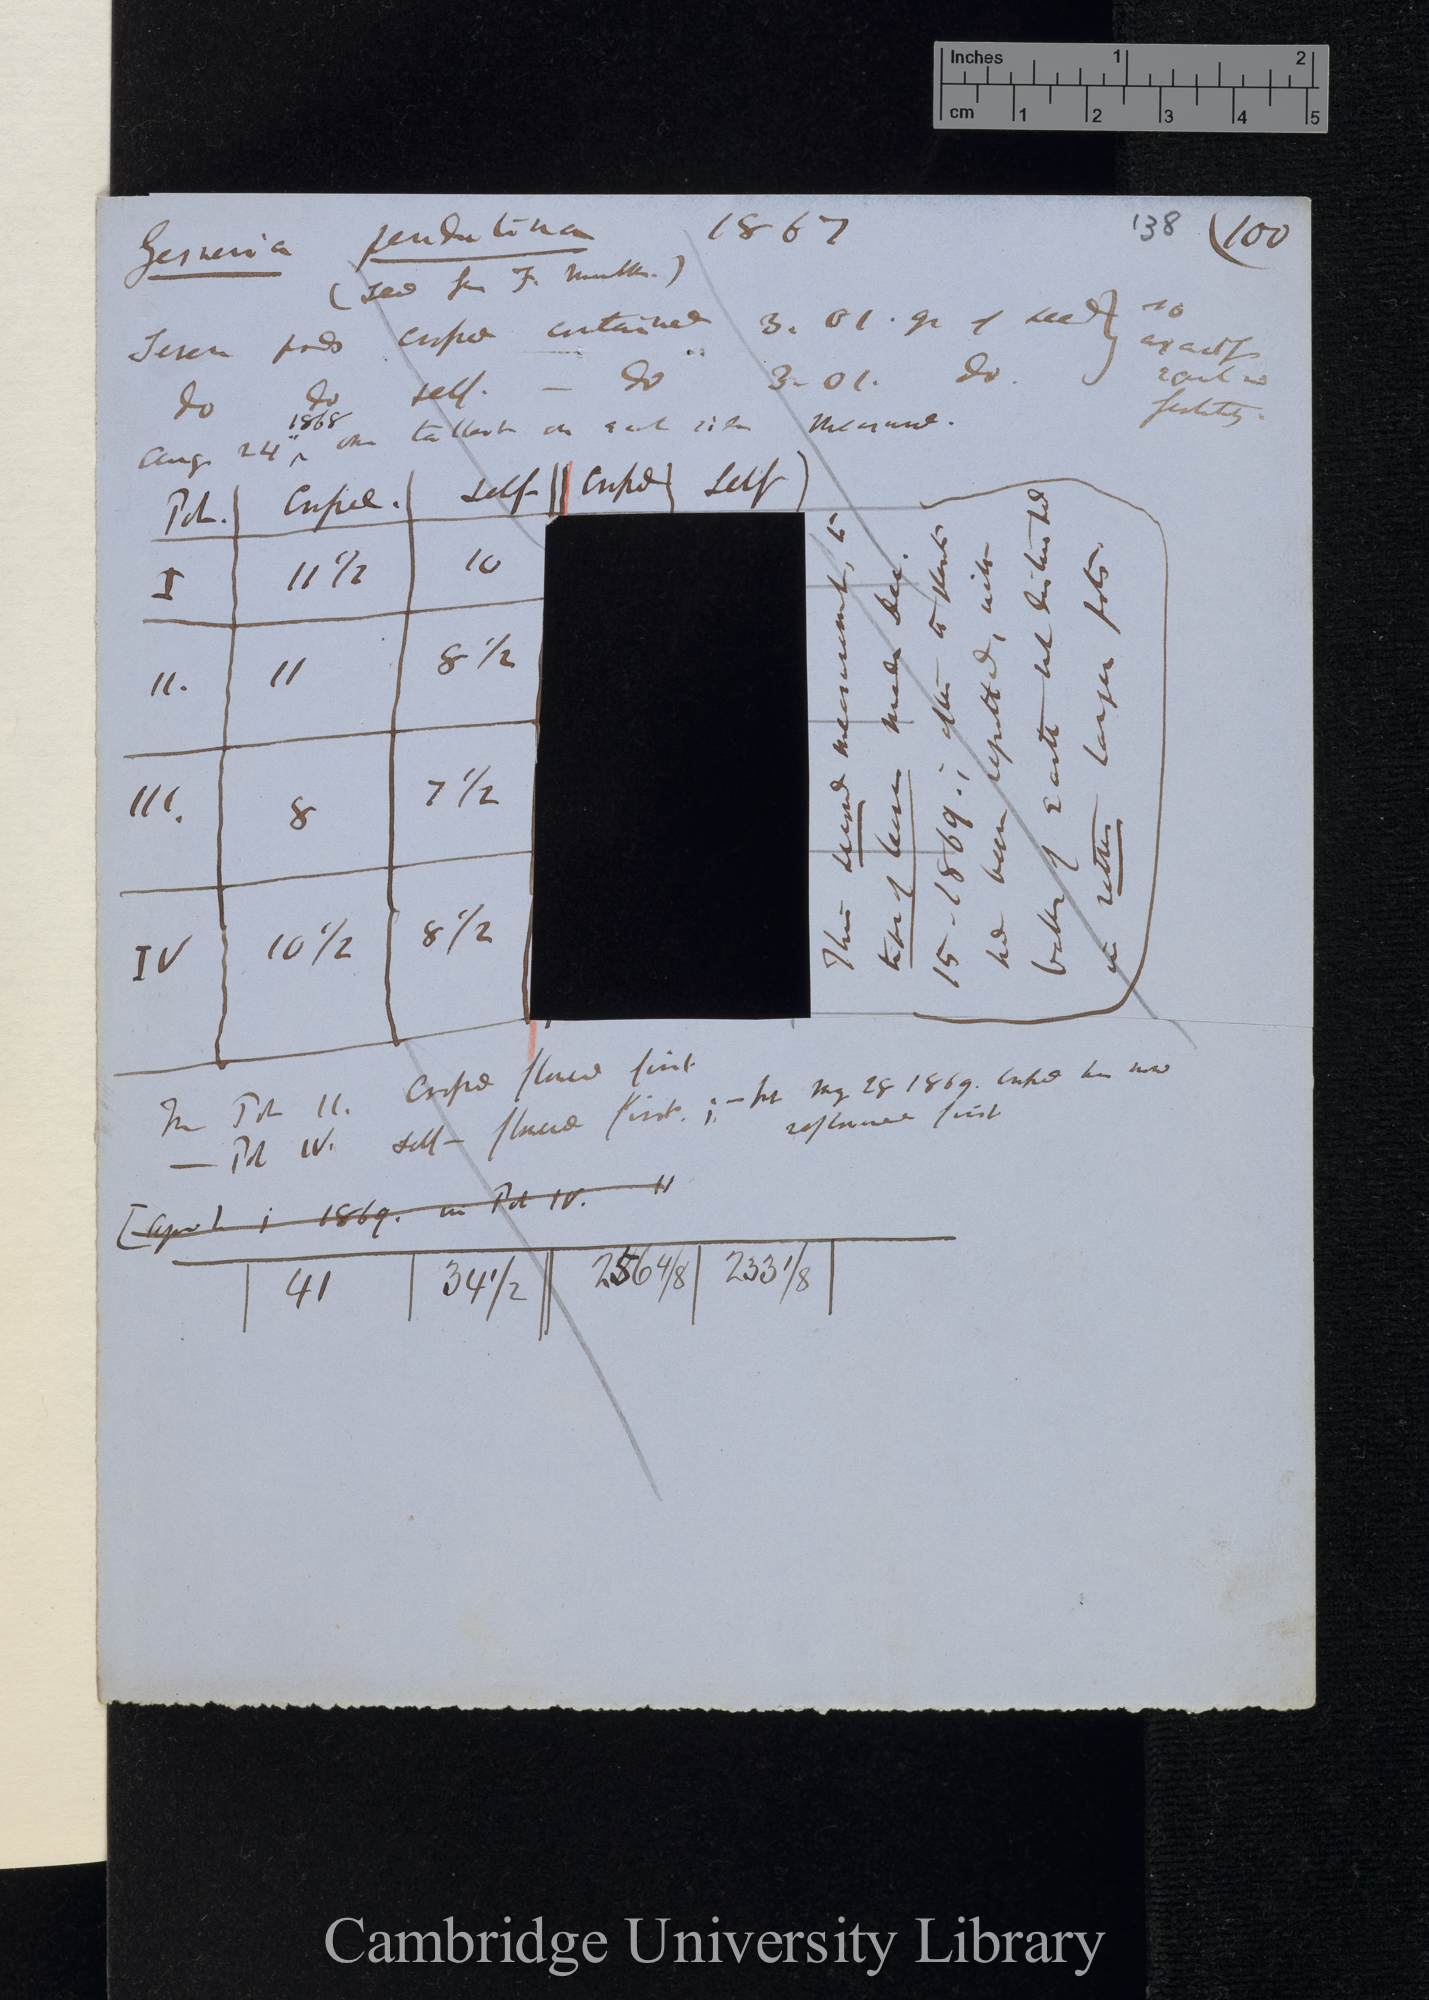 Inches 1 2
cm 1 2 3 4 5
138 (100
Gesneria pendulina 1867
(seed from F. Müller.)
Seven pods crossed contained 3. 01. gr of seed } so
do do self. — do 3. 01. do. exactly
equal in
fertility.
Aug. 24" 1868 one tallest on each side measured.
Pot. Crossed. Self- Crossed Self
I 11 1/2 10
II. 11 8 1/2
III. 8 7 1/2
IV 10 1/2 8 1/2
This second measurement, to
tips of leaves made Dec.
15 - 1869.; after the plants
had been repotted, with
balls of earth not disturbed
in rather larger pots.
In Pot II. Crossed flowered first
— Pot IV. self- flowered first.; – but May 28 1869. crossed has now
reflowered first
[April 1 1869. in Pot IV. 11
41 34 1/2 256 4/8 233 1/8
Cambridge University Library